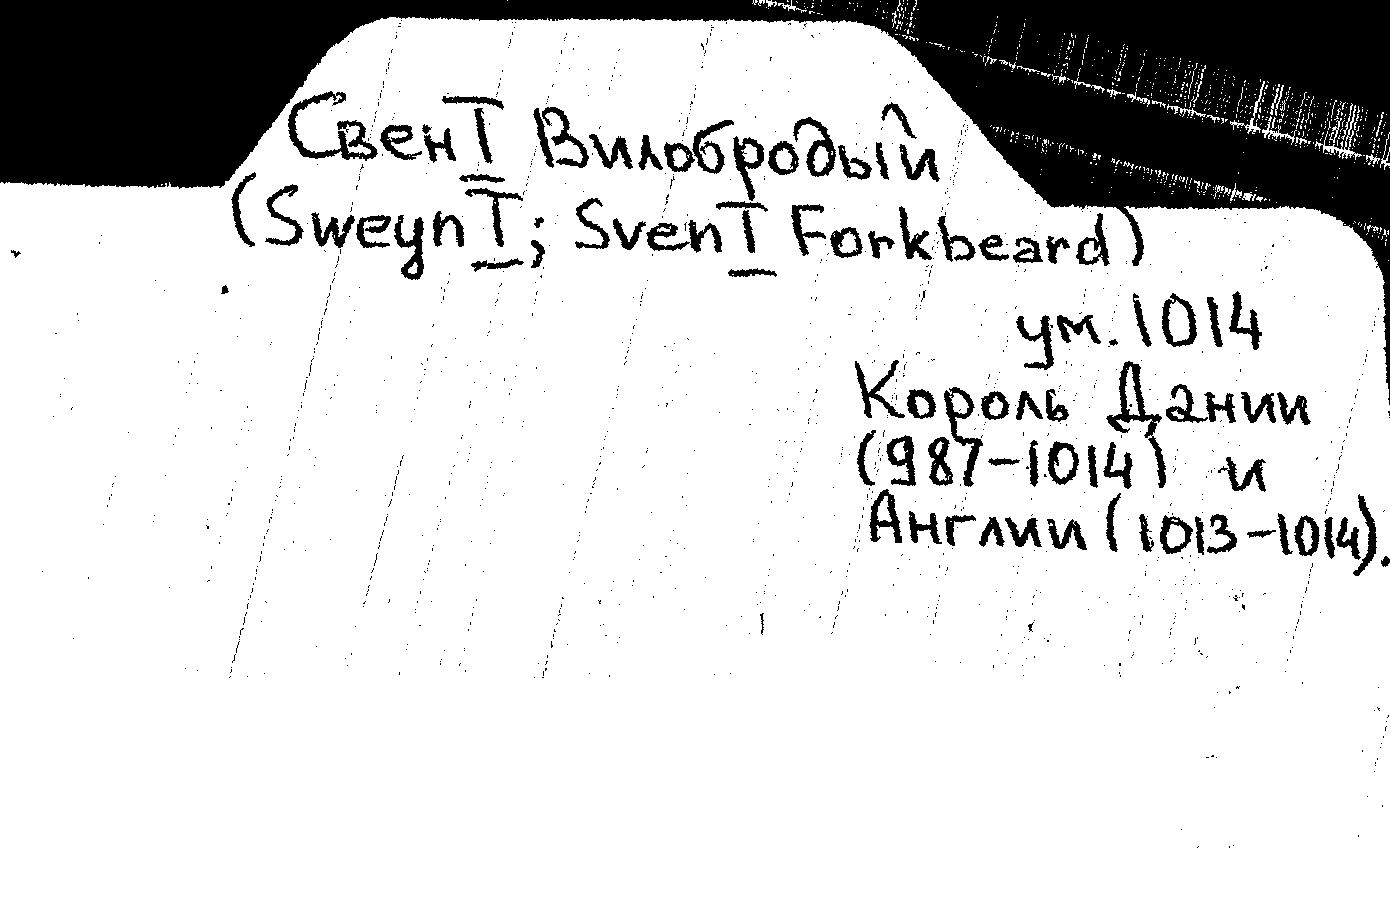 Свен I Вилобродый
(Sweyn I; Sven I Forkbeard)
ум. 1014
Король Дании
(987-1014) и
Англии (1013-1014).